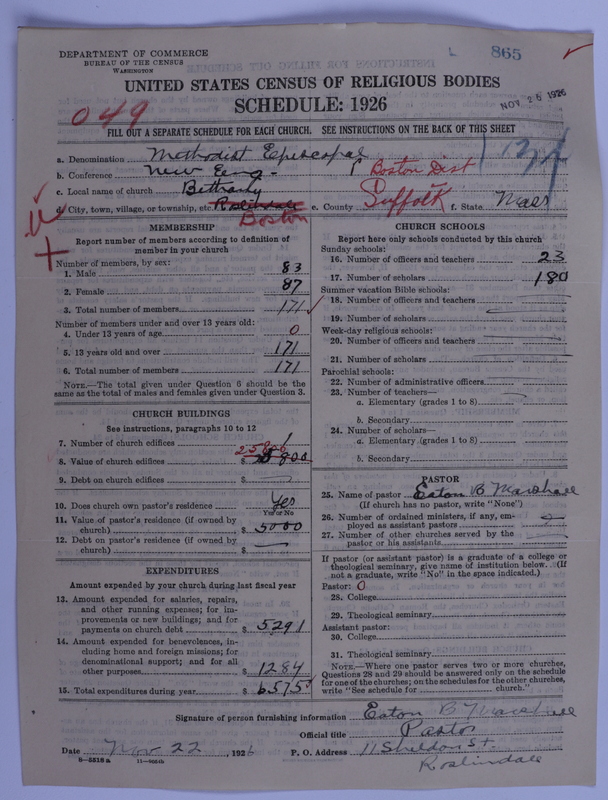 DEPARTMENT OF COMMERCE
BUREAU OF THE CENSUS
WASHINGTON
865
UNITED STATES CENSUS OF RELIGIOUS BODIES
SCHEDULE: 1926
NOV 26 1926
049
FILL OUT A SEPARATE SCHEDULE FOR EACH CHURCH. SEE INSTRUCTIONS ON THE BACK OF THIS SHEET
a. Denomination Methodist Episcopal
b. Conference New Eng. Boston Dist
c. Local name of church Bethany
d. City, town, village, or township, etc. Roslindale Boston e. County Suffolk f. State Mass
MEMBERSHIP
Report number of members according to definition of
member in your church
Number of members, by sex:
1. Male 83
2. Female 87
3. Total number of members 171
Number of members under and over 13 years old:
4. Under 13 years of age 0
5. 13 years old and over 171
6. Total number of members 171
NOTE.—The total given under Question 6 should be
same as the total of males and females given under Question 3.
CHURCH BUILDINGS
See instructions, paragraphs 10 to 12
7. Number of church edifices 1
25800
8. Value of church edifices $
9. Debt on church edifices $ —
10. Does church own pastor's residence Yes
Yes or No
11. Value of pastor's residence (if owned by
church) $ 5000
12. Debt on pastor's residence (if owned by
church) $ —
EXPENDITURES
Amount expended by your church during last fiscal year
13. Amount expended for salaries, repairs,
and other running expenses; for im-
provements or new buildings; and for
payments on church debt $ 5291
14. Amount expended for benevolences, in-
cluding home and foreign missions; for
denominational support; and for all
other purposes $ 1284
15. Total expenditures during year $ 6575
CHURCH SCHOOLS
Report here only schools conducted by this church
Sunday schools:
16. Number of officers and teachers 23
17. Number of scholars 180
Summer vacation Bible schools:
18. Number of officers and teachers
19. Number of scholars
Week-day religious schools:
20. Number of officers and teachers
21. Number of scholars
Parochial schools:
22. Number of administrative officers
23. Number of teachers—
a. Elementary (grades 1 to 8)
b. Secondary
24. Number of scholars—
a. Elementary (grades 1 to 8)
b. Secondary
PASTOR
25. Name of pastor Eaton B Marshall
(If church has no pastor, write "None")
26. Number of ordained ministers, if any, em-
ployed as assistant pastors
27. Number of other churches served by the
pastor or his assistants
If pastor (or assistant pastor) is a graduate of a college or
theological seminary, give name of institution below. (If
not a graduate, write "No" in the space indicated.)
Pastor: 0
28. College
29. Theological seminary
Assistant pastor:
30. College
31. Theological seminary
NOTE.—Where one pastor serves two or more churches,
Questions 28 and 29 should be answered only on the schedule
for one of the churches; on the schedules for the other churches,
write "See schedule for church."
Signature of person furnishing information Eaton B Marshall
Official title Pastor
Date Nov 22, 1926 P. O. Address 11 Sheldon St.
Roslindale
8—5518 a